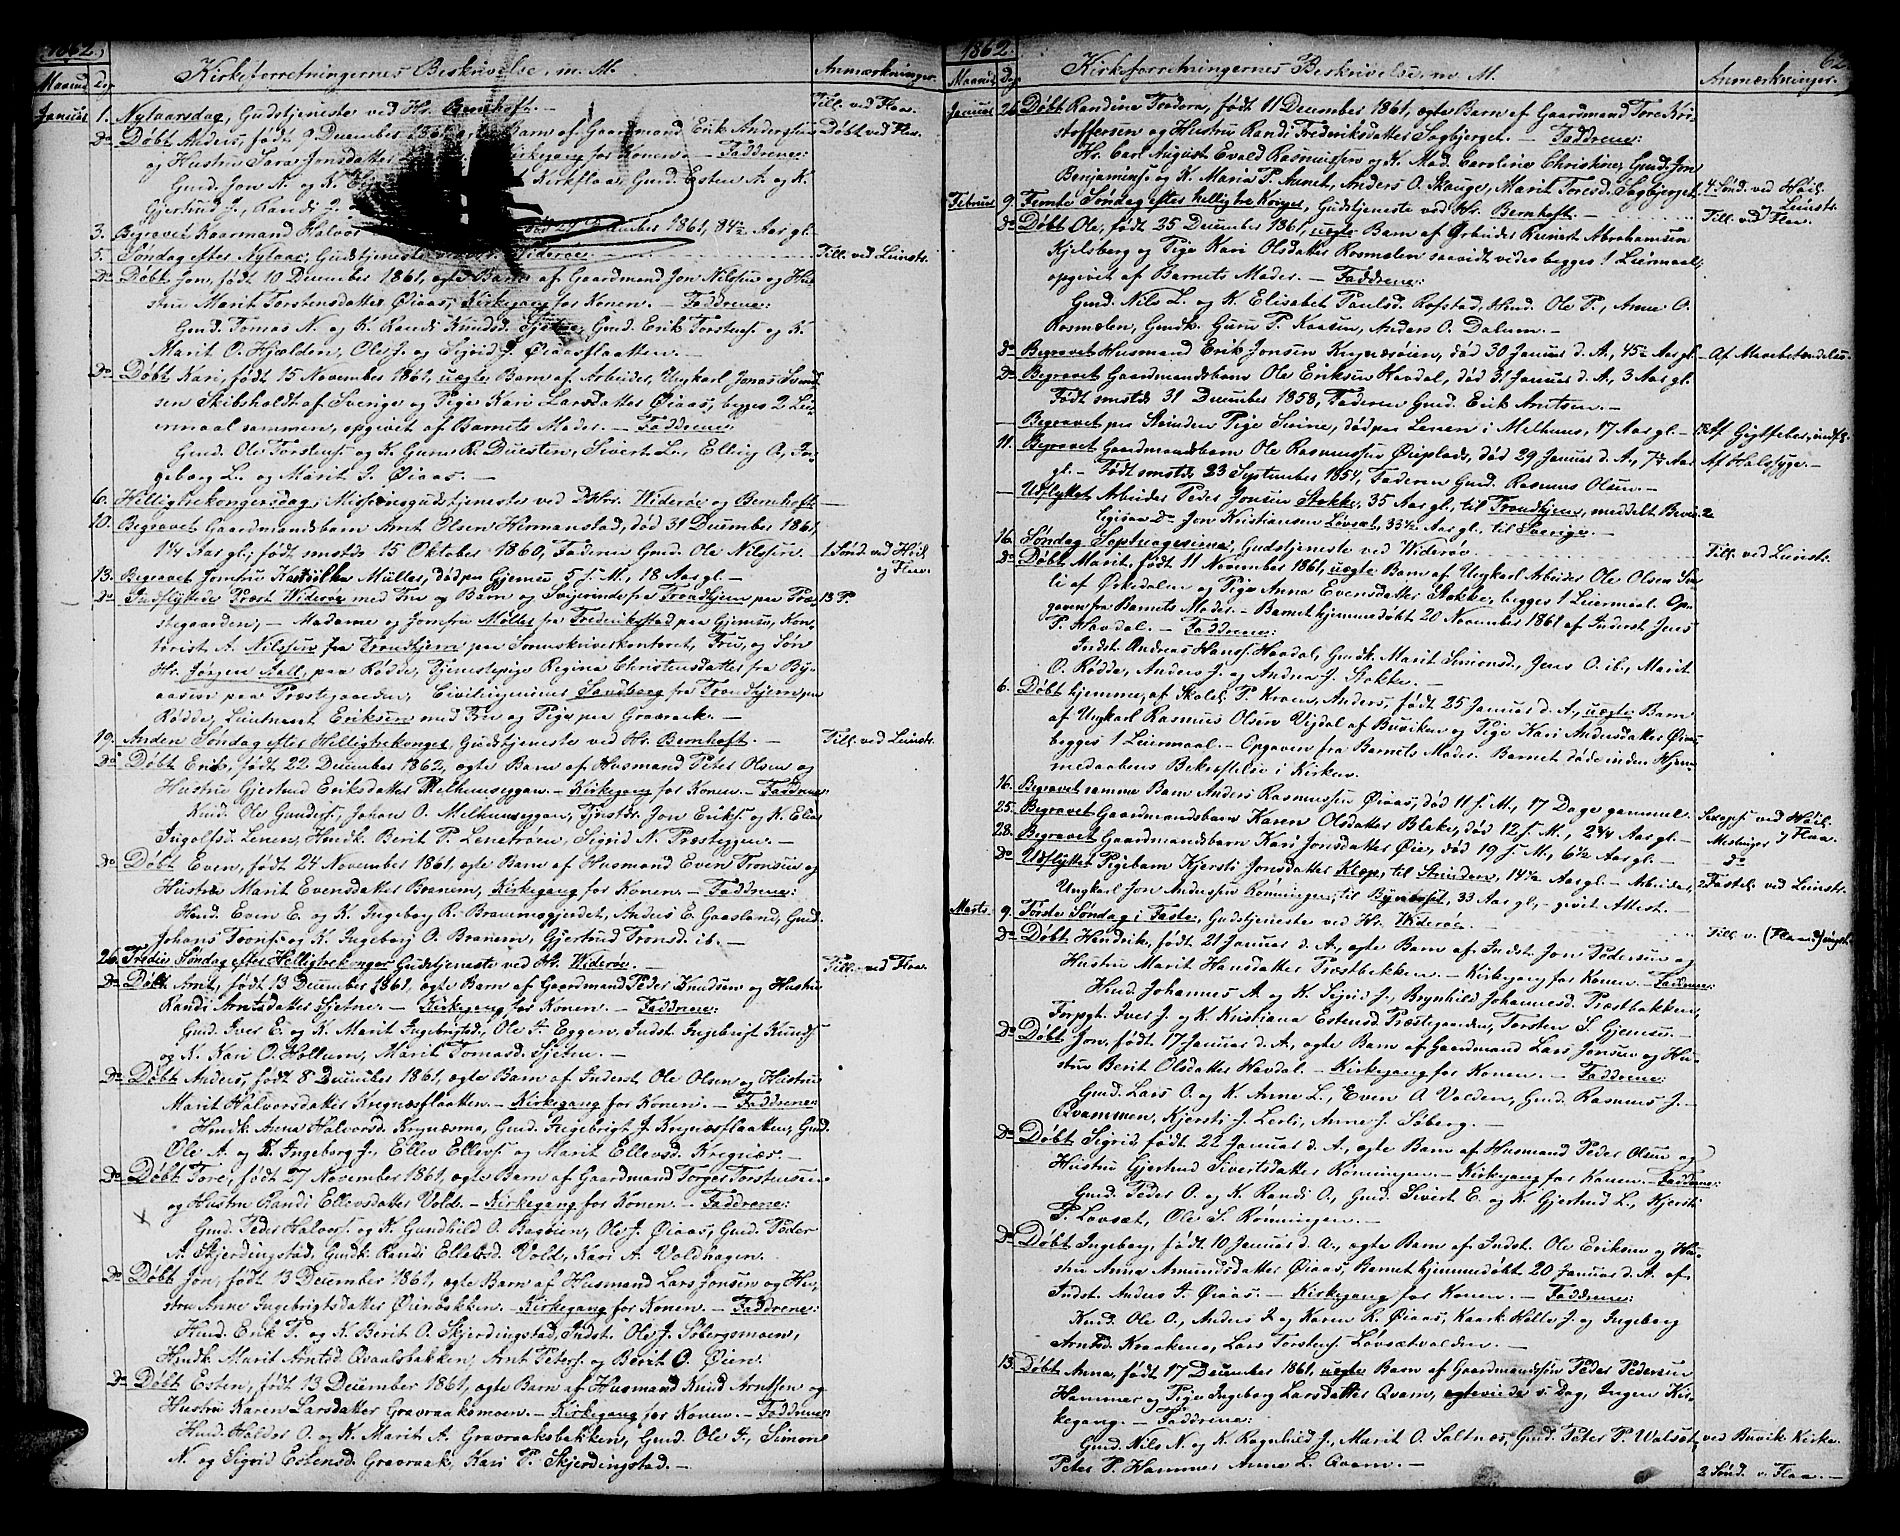 1862.
Maaned Dag Kirkeforretningernes Beskrivelse m. M. Anmærkninger.
Januar 1. Nytaarsdag, Gudstjeneste ved Hr. Bernhoft. – Till. ved Flaa.
Do Døbt Anders, født 9 December 1861, Barn af Gaardmand Erik Andersen Døbt ved Flaa.
og Hustru Sara Jonsdatter Kirkegang for Konen. – Faddrene:
Gmd. Jon A. og K. Kirkflaa, Gmd. Esten A. og K.
Gjertrud J., Randi J.
3. Begravet Kaarmand Halvor December 1861, 84½ Aar gl.
5. Søndag efter Nytaar, Gudstjeneste Widerøe. Till. ved Leinstr.
Do Døbt Jon, født 10 December 1861, ægte Barn af Gaardmand Jon Nilssen og Hu-
stru Marit Torstensdatter Øiaas, Kirkegang for Konen. – Faddrene:
Gmd. Tomas N. og K. Randi Knudsd. Sjetne, Gmd. Erik Torstens. og K.
Marit O. Hjælden, Ole J. og Sigrid J. Øiaasflaatten. –
Do Døbt Kari, født 15 November 1861, uægte Barn af Arbeider, Ungkarl Jonas Svend-
sen Skibsholdt af Sverige og Pige Kari Larsdatter Øiaas, begges 2 Lei-
ermaal sammen, opgivet af Barnets Moder. – Faddrene
Gmd. Ole Torstens. og K. Guru R. Duesten, Sivert L., Elling A, In-
geborg L. og Marit J. Øiaas. –
6. Helligtrekongersdag, Missionsgudstjeneste ved DHrr. Widerøe og Bernhoft
10. Begravet Gaardmandsbarn Arnt Olsen Hermanstad, død 31 December 1861,
1¼ Aar gl., født smstds 15 Oktober 1860, Faderen Gmd. Ole Nilssen. 1. Sønd. ved Høil.
og Flaa.
13. Begravet Jomfru Müller, død paa Gjemes 5 f. M., 18 Aar gl. –
Do Indflyttede Præst Widerøe med Fru og Barn og Svigerinde fra Trondhjem paa Præ- 13 P.
stegaarden, – Madame og Jomfru Møller fra Frederikstad paa Gjemsu, Kon-
torist A. Nilssen fra Trondhjem paa Sorenskriverkontoret, Fru, og Søn
Hr. Jørgen Aall, paa Rødde, Tjenestepige Regina Christensdatter fra By-
aasen paa Præstegaarden, Civilingeniør Sandborg fra Trondhjem paa
Rødde, Leutnant Eriksen med Fru og Pige paa Gravraak. –
19. Anden Søndag efter Helligtrekonger, Gudstjeneste ved Hr. Bernhoft. – Till. ved Leinstr.
Do Døbt Erik, født 22 December 1862, ægte Barn af Husmand Peter Olsen og
Hustru Gjertrud Eriksdatter Melhuuseggen. – Kirkegang for Konen – Faddrene
Kmd. Ole Gunders., Johan O. Melhuuseggen, Tjnstdr. Jon Eriks. og K. Elen
Ingolfsd. Lenen, Hmdk. Berit P. Lenetrøen, Sigrid N. Præsteggen. –
Do Døbt Even, født 24 November 1861, ægte Barn af Husmand Even Tronsen og
Hustru Marit Evensdatter Branem, Kirkegang for Konen. – Faddrene:
Hmd. Even E. og K. Ingeborg R. Branemsgjerdet, Anders E. Gaasland, Gmd.
Johans Trons. og K. Ingeborg O. Branem, Gjertrud Tronsd. ib. –
26. Tredie Søndag efter Helligtrekonger Gudstjeneste ved Hr. Widerøe. Till. ved Flaa.
Do Døbt Arnt, født 13 December 1861, ægte Barn af Gaardmand Peder Knudsen og Hustru
Randi Arntsdatter Sjetne. – Kirkegang for Konen. – Faddrene:
Gmd. Iver E. og K. Marit Ingebrigtsd., Ole A. Eggen, Indst. Ingebrigt Knuds.
og K. Kari O. Hollum, Marit Tomasd. Sjetne. –
Do Døbt Anders, født 8 December 1861, ægte Barn af Inderst Ole Olsen og Hustru
Marit Halvorsdatter Kregnæsflaatten. – Kirkegang for Konen. – Faddrene
Hmdk. Anna Halvorsd. Kregnæsmo, Gmd. Ingebrigt J. Kregnæsflaatten, Gmd.
Ole A. og K. Ingeborg J., Ellev Ellevs. og Marit Ellevsd. Kregnæs. –
Do Døbt Tore, født 27 November 1861, ægte Barn af Gaardmand Torger Torstensen
og Hustru Randi Ellevsdatter Vold. – Kirkegang for Konen. – Faddrene:
Gmd. Peder Halvors. og K. Gunhild O. Bagøien, Ole J. Øiaas, Gmd. Peder
A. Skjerdingstad, Gmdk. Randi Ellevsd. Vold, Kari A. Voldhagen.
Do Døbt Jon, født 13 December 1861, ægte Barn af Husmand Lars Jonsen og Hu-
stru Anne Ingebrigtsdatter Øienbakken. – Kirkegang for Konen. – Faddrene:
Hmd. Erik P. og K. Berit O. Skjerdingstad, Indst. Ole J. Søbergsmoen,
Hmdk. Marit Arntsd. Qvaalsbakken, Arnt Peters. og Berit O. Øien.
Do Døbt Esten, født 13 December 1861, ægte Barn af Husmand Knud Arntsen og
Hustru Karen Larsdatter Gravraaksmoen. – Kirkegang for Konen. – Faddrene
Hmd. Haldor O. og K. Marit A. Gravraaksbakken, Gmd. Ole A., Simon
N. og Sigrid Estensd. Gravraak, Kari P. Skjerdingstad. –
1862. 62.
Maaned Dag Kirkeforretningernes Beskrivelse, m. M. Anmærkninger.
Januar 26. Døbt Randine Teodora, født 11 December 1861, ægte Barn af Gaardmand Tore Kri-
stoffersen og Hustru Randi Frederiksdatter Sogbjerget. – Faddrene:
Hr. Carl August Evald Rasmussen og K. Mad. Caroline Christine, Gmd. Jon
Benjamins. og K. Maria P. Aunet, Anders O. Skauge, Marit Toresd. Sogbjerget. 4 Sønd. ved Høil.
Februar 9. Femte Søndag efter helligtre Konger, Gudstjeneste ved Hr. Bernhoft. – og Leinstr.
Do Døbt Ole, født 25 December 1861, uægte Barn af Arbeider Reinert Abrahamsen Till. ved Flaa.
Kjelsberg og Pige Kari Olsdatter Rosmælen saavidt vides begges 1 Leiermaal,
opgivet af Barnets Moder. – Faddrene:
Gmd. Nils L. og K. Elisabet Paulsd. Rofstad, Hmd. Ole P., Anne O.
Rosmælen, Gmdk. Guru P. Kaasen, Anders O. Dalum. –
Do Begravet Husmand Erik Jonsen Kregnæsøien, død 30 Januar d. A., 45½ Aar gl. – Af Marebetændelse.
Do Begravet Gaardmandsbarn Ole Eriksen Havdal, død 31 Januar d. A., 3 Aar gl.
Født smstds 31 December 1858, Faderen Gmd. Erik Arntsen. –
– Begravet paa Strinden Pige Sirine, død paa Lenen i Melhuus, 17 Aar gl. – Af Gigtfeber,
11. Begravet Gaardmandsbarn Ole Rasmussen Øieplads, død 29 Januar d. A., 7¼ Aar Af Halssyge. –
gl. – Født smstds 23 September 1854, Faderen Gmd. Rasmus Olsen. –
– Udflyttet Arbeider Peder Jonsen Stokke, 35 Aar gl., til Trondhjem, meddelt Bevis 2
ligesaa Do Jon Kristiansen Løvset, 33½ Aar gl. til Sverige. –
16. Søndag Septuagesima, Gudstjeneste ved Widerøe Till. ved Leinstr.
Do Døbt Marit, født 11 November 1861, uægte Barn af Ungkarl Arbeider Ole Olsen
li af Orkedalen og Pige Anna Evensdatter Stokke, begges 1 Leiermaal. Op-
gaven fra Barnets Moder. – Barnet hjemmedøbt 20 November 1861 af Inderst Jens
P. Havdal. – Faddrene:
Indst. Andreas Hans. Havdal, Gmdk. Marit Simonsd., Jens O. ib., Marit
O. Rødde, Anders J. og Andrea J. Stokke. –
6. Døbt hjemme, af Skolel. P. Kroen, Anders, født 25 Januar d. A., uægte Barn
af Ungkarl Rasmus Olsen Vigdal af Buviken og Pige Kari Andersdatter Øiaas
begges 1 Leiermaal. – Opgaven fra Barnets Moder. Barnet døde inden Hjem-
medaabens Bekræftelse i Kirken.
16. Begravet samme Barn Anders Rasmussen Øiaas, død 11 f. M., 17 Dage gammel.
25. Begravet Gaardmandsbarn Karen Olsdatter Bleke, død 12 f. M., 2¾ Aar gl. – Sexages. ved Høil.
28. Begravet Gaardmandsbarn Kari Jonsdatter Øie, død 19 f. M., 6½ Aar gl. – Meslinger og Flaa.
Do Udflyttet Pigebarn Kjersti Jonsdatter Klæp, til Strinden, 14½ Aar gl. – Arbeider, Do
Ungkarl Jon Andersen Rønningen, til Bynæset, 33 Aar gl., – givit Attest. – 2 Fastel. ved Leinstr.
Marts 9. Første Søndag i Faste, Gudstjeneste ved Hr. Widerøe.
Do Døbt Hendrik, født 21 Januar d. A., ægte Barn af Indst. Jon Pedersen og Till. v. (Flaa)
Hustru Marit Hansdatter Præstbakken. – Kirkegang for Konen. – Faddrene:
Hmd. Johannes A. og K. Sigrid J., Brynhild Johannesd. Præstbakken,
Forpgt. Iver J. og K. Kristiana Estensd. Præstegaarden, Torsten S. Gjemsu. –
Do Døbt Jon, født 17 Januar d. A., ægte Barn af Gaardmand Lars Jonsen og Hu-
stru Berit Olsdatter Havdal. – Kirkegang for Konen. – Faddrene:
Gmd. Lars O. og K. Anne L., Even A Volden, Gmd. Rasmus J.
Qvammen, Kjersti J. Lerli, Anne J. Søberg. –
Do Døbt Sigrid født 22 Januar d. A., ægte Barn af Husmand Peder Olsen og
Hustru Gjertrud Sivertsdatter Rønningen. – Kirkegang for Konen. – Faddrene:
Gmd. Peder O. og K. Randi O., Gmd. Sivert E. og K. Gjertrud L., Kjersti
P. Lovsæt, Ole S. Rønningen. –
Do Døbt Ingeborg, født 10 Januar d. A., ægte Barn af Indst. Ole Eriksen og Hu-
stru Anna Amundsdatter Øiaas, Barnet hjemmedøbt 20 Januar d. A. af
Indst. Anders A. Øiaas. – Kirkegang for Konen. – Faddrene:
Kmd. Ole O., Anders J. og Karen R. Øiaas, Kaark. Helle J. og Ingeborg
Arntsd. Kraaken, Lars Torstens. Løvsætvolden. –
13. Døbt Anne, født 17 December 1861, uægte Barn af Gaardmandssøn Peder Pedersen
Hammer og Pige Ingeborg Larsdatter Qvam, ægteviede s. Dag, Ingen Kir-
kegang. – Faddrene:
Gmd. Nils N. og K. Ragnhild J., Marit O. Saltnes, Gmd. Peter P. Walset, ved Buvik Kirke.
Peter P. Hammer Anne L. Qvam. –
2 Sønd. v. Flaa. –